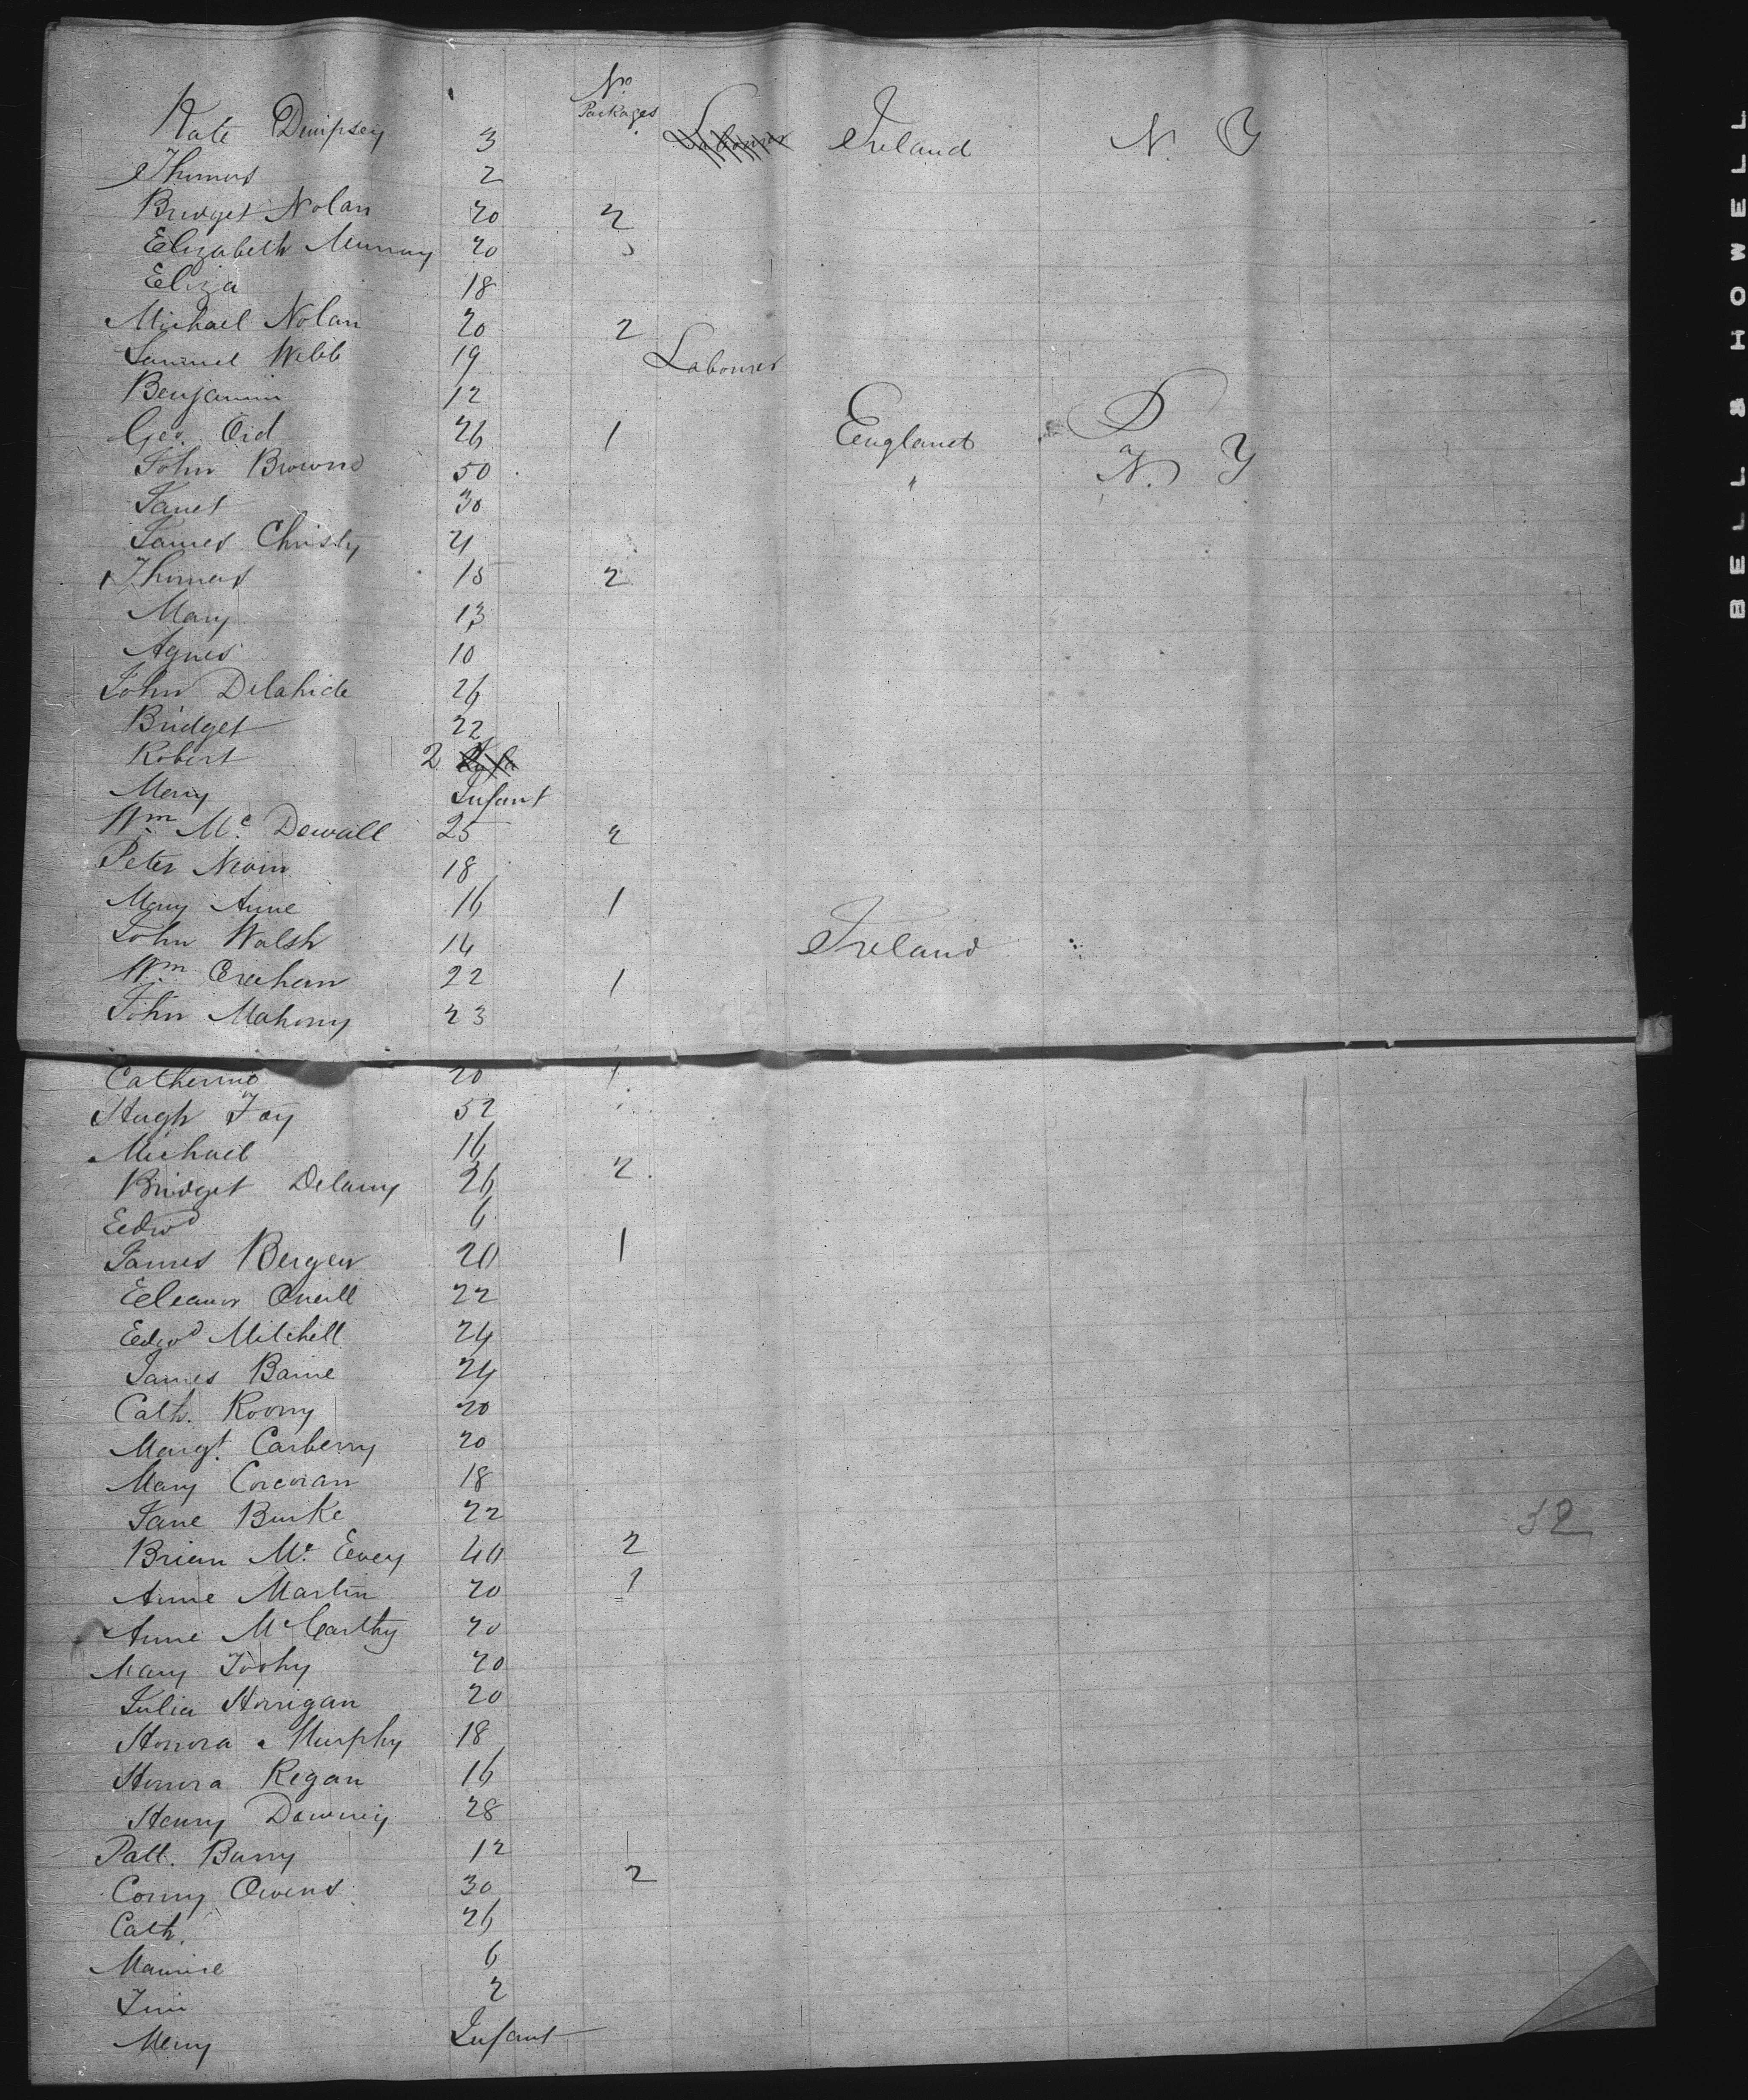 No
Packages
Kate Dempsey 3 Labourer Ireland N. Y
Thomas 2
Bridget Nolan 20 2
Elizabeth Murray 20
Eliza 18
Michael Nolan 20 2
Samuel Webb 19 Labourer
Benjamin 12
Geo. Oid 26 1 England
John Brown 50 " N. Y
Janet 30
James Christy 21
Thomas 15 2
Mary 13
Agnes 10
John Delahide 26
Bridget 22
Robert 2
Mary Infant
Wm Mc Dowall 25 2
Peter 18
Mary Anne 16 1
John Walsh 14 Ireland
Wm 22 1
John Mahony 23
Catherine 20 1
Hugh Foy 52
Michael 16
Bridget Delany 26 2
Edwd 6
James Bergen 20 1
Eleanor Oneill 22
Edwd Mitchell 24
James 24
Cath. Roony 20
Margt. Carberry 20
Mary Corcoran 18
Jane Burke 22
32
Brian Mc Evey 40 2
Anne Martin 20 1
Anne McCarthy 20
Mary Toohy 20
Julia Horrigan 20
Honora Murphy 18
Honora Regan 16
Henry Downey 28
Patt. Barry 12
Corny Owens 30 2
Cath. 26
Maurice 6
Jim 2
Mary Infant
BELL & HOWELL